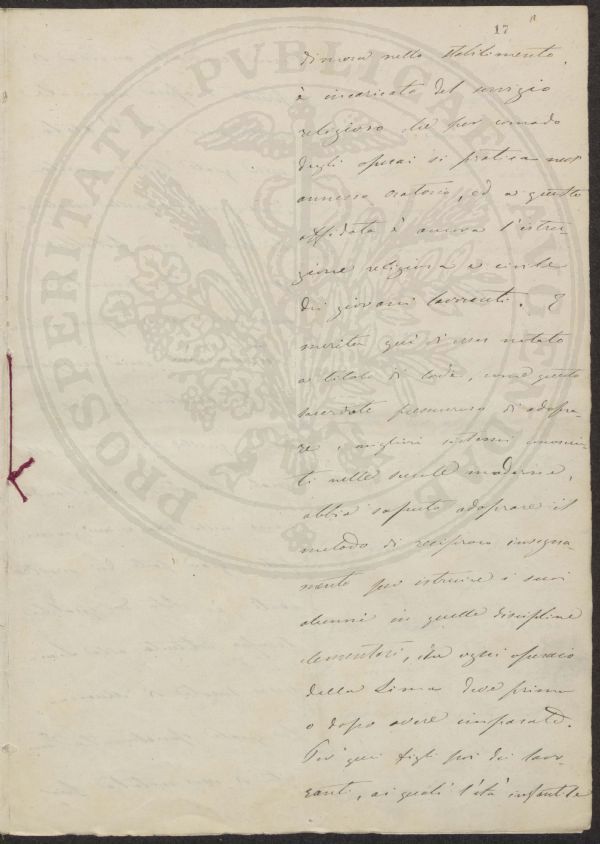 17
dimora nello Stabilimento,
è incaricato del servizio
religioso che per comodo
degli operai si pratica nell'
annesso oratorio, ed a questo
affidata è ancora l'istru-
zione religiosa e civile
dei giovani lavoranti. E
merita quì di esser notato
a titolo di lode, come questo
sacerdote premuroso di adopra-
re i migliori sistemi conosciu-
ti nelle scuole moderne,
abbia saputo adoprare il
metodo di reciproco insegna-
mento per istruire i suoi
alunni in quelle discipline
elementari, che ogni operaio
della Lima deve prima
o dopo avere imparate.
Per quei figli poi dei lavo-
ranti, ai quali l'età infantile
PROSPERITATI PVBLICAE AVGENDAE